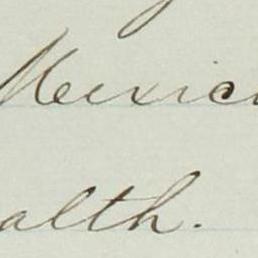 Mexic
alth.